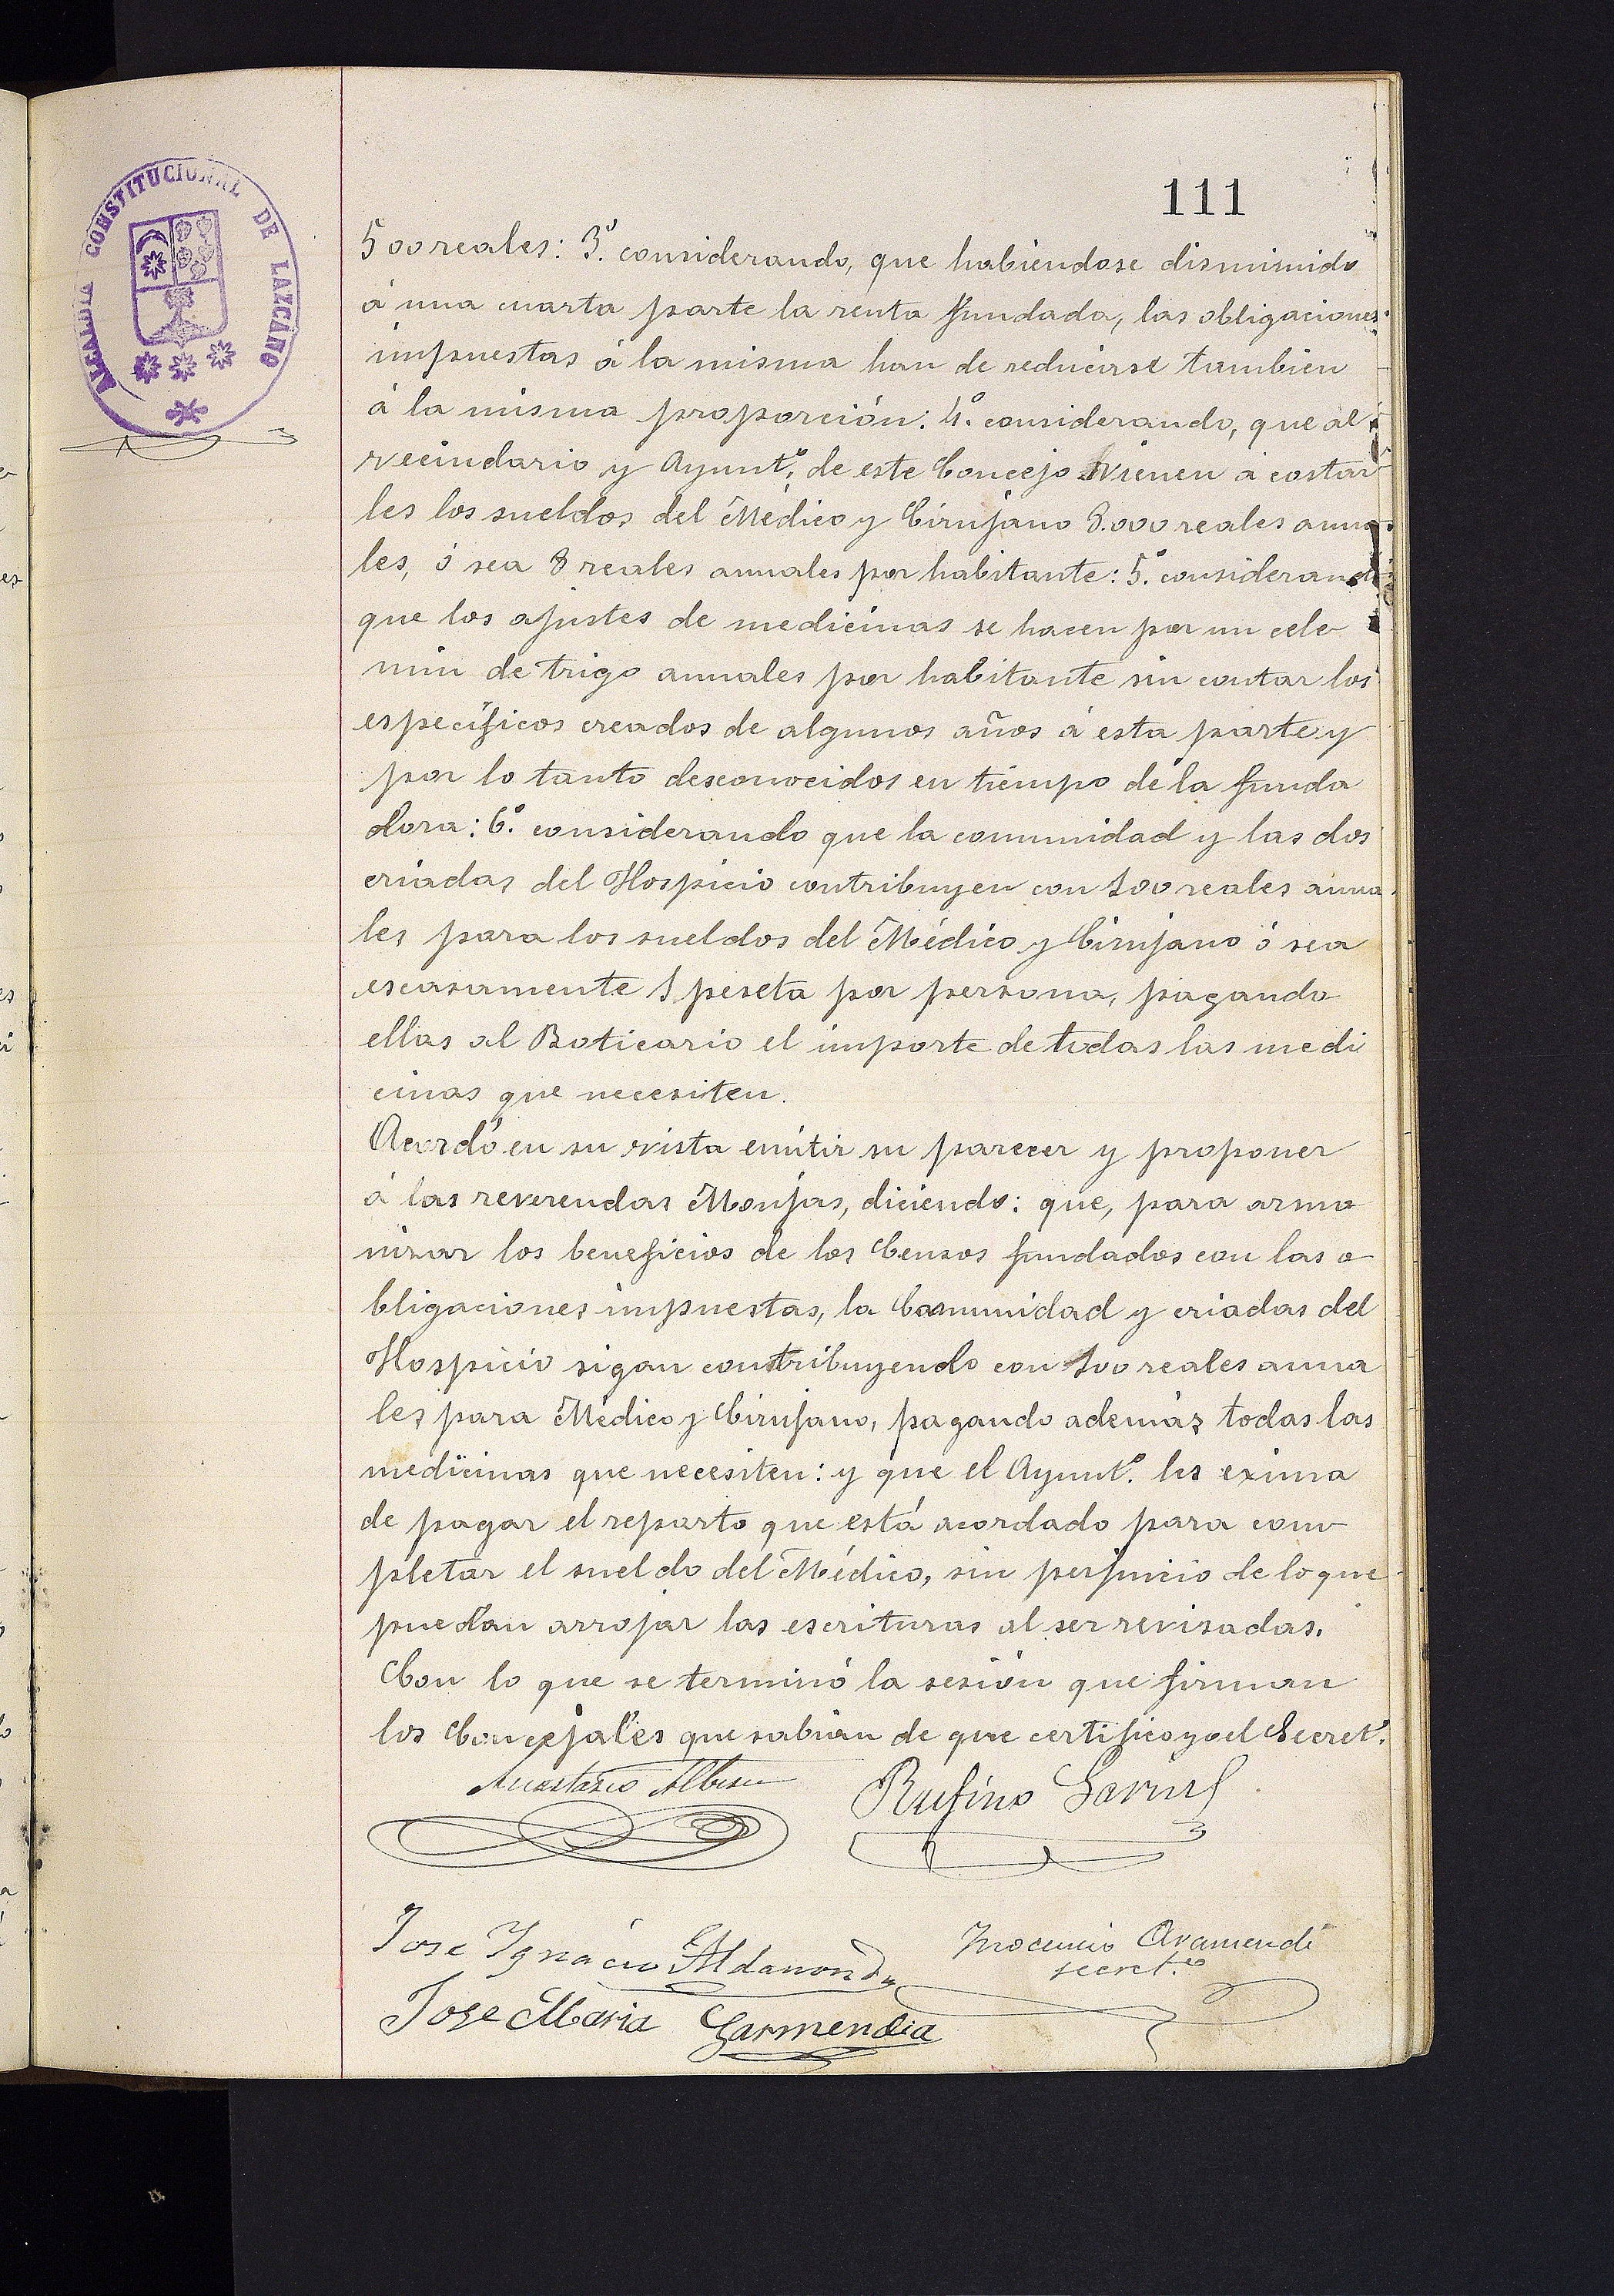 111
ALCALDÍA CONSTITUCIONAL DE LAZCANO
500 reales: 3.º considerando, que habiendose disminuido
á una cuarta parte la renta fundada, las obligaciones
impuestas á la misma han de reducirse tambien
á la misma proporción: 4.º considerando, que al
vecindario y Ayunt.º de este Concejo vienen á costar
les los sueldos del Médico y Cirujano 8.000 reales anua
les, ó sea 8 reales anuales por habitante: 5.º considerando
que los ajustes de medicinas se hacen por un cele
min de trigo anuales por habitante sin contar los
específicos creados de algunos años á esta parte y
por lo tanto desconocidos en tiempo de la funda
dora: 6.º considerando que la comunidad y las dos
criadas del Hospicio contribuyen con 100 reales anua
les para los sueldos del Médico y Cirujano ó sea
escasamente 1 peseta por persona, pagando
ellas al Boticario el importe de todas las medi
cinas que necesiten.
Acordó en su vista emitir su parecer y proponer
á las reverendas Monjas, diciendo: que, para armo
nizar los beneficios de los Censos fundados con las o
bligaciones impuestas, la Comunidad y criadas del
Hospicio sigan contribuyendo con 100 reales anua
les para Médico y Cirujano, pagando además todas las
medicinas que necesiten: y que el Ayunt.º les exima
de pagar el reparto que está acordado para com
pletar el sueldo del Médico, sin perjuicio de lo que
puedan arrojar las escrituras al ser revisadas.
Con lo que se terminó la sesión que firman
los Concejales que sabian de que certifico yo el Secret.º
Anastasio Albisu
Rufino
Jose Ignacio Aldanondo
Inocencio Aramendi
secret.º
Jose Maria Garmendia